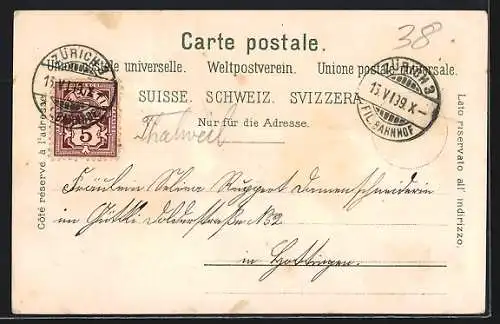 Carte postale.
38.
Union postale universelle. Weltpostverein. Unione postale universale.
SUISSE. SCHWEIZ. SVIZZERA
Nur für die Adresse.
Côté réservé à l'adresse.
Lato riservato all' indirizzo.
ZÜRICH 3
13.VI
5
ZÜRICH 3
13 VI 99 X-
FIL. BAHNHOF
Thalweil
Fräulein Selina Ruggert Damenschneiderin
im Gütli Dolderstraße No 2
in Hottingen.